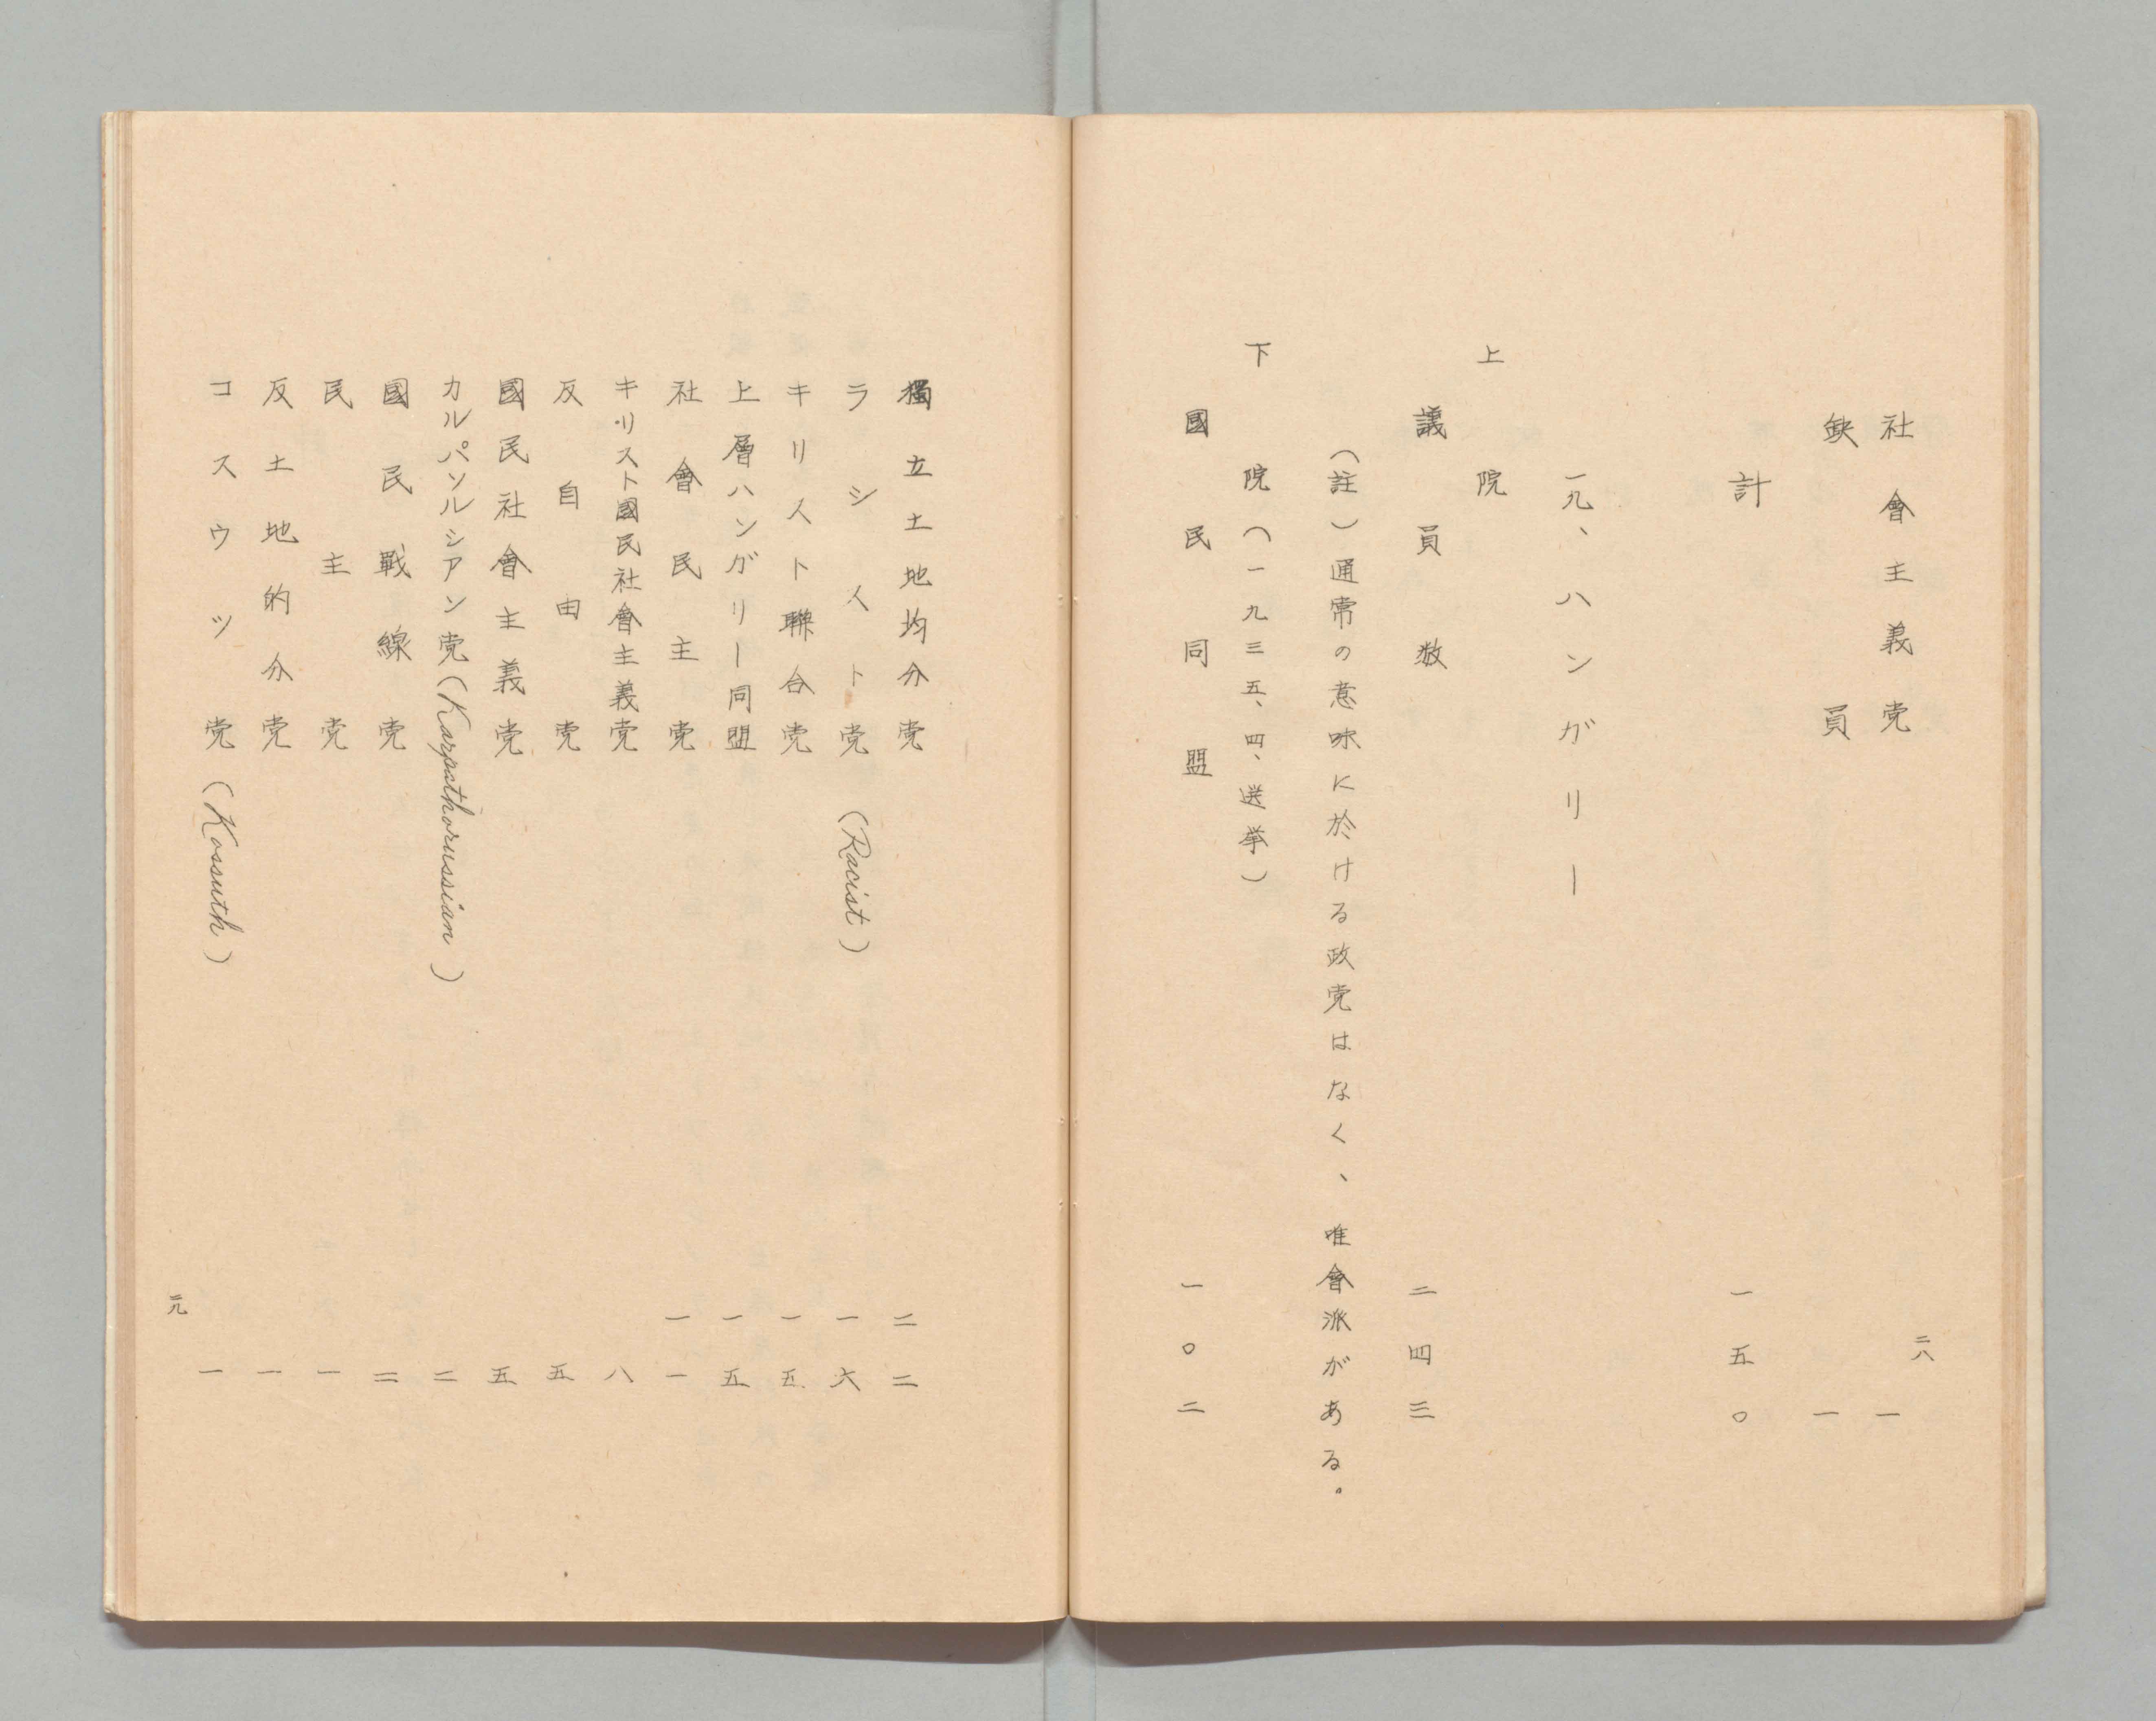 二八
社會主義党 一
缺員 一
計 一五〇
一九、ハンガリー
上院
議員数 二四三
（註）通常の意味に於ける政党はなく、唯會派がある。
下院（一九三五、四、選挙）
國民同盟 一〇二
獨立土地均分党 二二
ラシスト党（Racist） 一六
キリスト聯合党 一五
上層ハンガリー同盟 一五
社會民主党 一一
キリスト國民社會主義党 八
反自由党 五
國民社會主義党 五
カルパソルシアン党（Karpathorussian） 二
國民戰線党 二
民主党 一
反土地的分党 一
コスウツ党（Kossuth） 一
二九